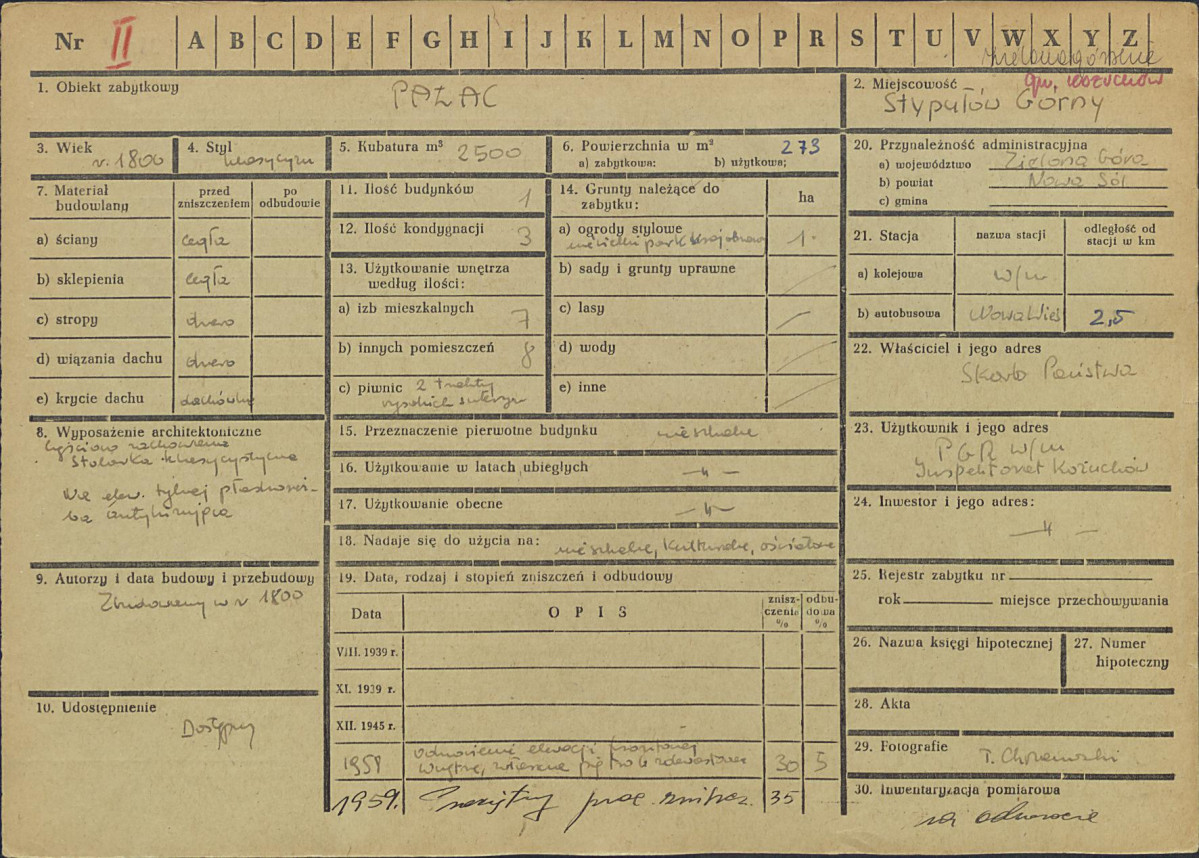 Nr II A B C D E F G H I J K L M N O P R S T U V W X Y Z
zielonogórskie
gm. Kożuchów
1. Obiekt zabytkowy
PAŁAC
2. Miejscowość
Stypułów Górny
3. Wiek
r. 1800
4. Styl
klasycyzm
5. Kubatura m³ 2500
6. Powierzchnia w m² 273
a) zabytkowa: b) użytkowa;
7. Materiał budowlany
przed zniszczeniem
po odbudowie
a) ściany cegła
b) sklepienia cegła
c) stropy drewo
d) wiązania dachu drewo
e) krycie dachu dachówka
8. Wyposażenie architektoniczne
zachowana
Stolarka klasycystyczna
Na elew. tylnej płaskorzeź-
ba
9. Autorzy i data budowy i przebudowy
Zbudowany w r 1800
10. Udostępnienie
Dostępny
11. Ilość budynków 1
12. Ilość kondygnacji 3
13. Użytkowanie wnętrza
według ilości:
a) izb mieszkalnych 7
b) innych pomieszczeń 8
c) piwnic 2 trakty
wysokich suteryn
14. Grunty należące do
zabytku:
ha
a) ogrody stylowe
niewielki park krajobrazowy 1.
b) sady i grunty uprawne
c) lasy
d) wody
e) inne
15. Przeznaczenie pierwotne budynku mieszkalne
16. Użytkowanie w latach ubiegłych — " —
17. Użytkowanie obecne — " —
18. Nadaje się do użycia na: mieszkalne, kulturalne, oświatowe
19. Data, rodzaj i stopień zniszczeń i odbudowy
Data
O P I S
znisz-
czenia
%
odbu-
dowa
%
VIII. 1939 r.
XI. 1939 r.
XII. 1945 r.
1958 Odnowienie elewacji frontowej
Wnętrze, piętro zdewastowane 30 5
1959. proc. zniszcz. 35
20. Przynależność administracyjna
a) województwo Zielona Góra
b) powiat Nowa Sól
c) gmina
21. Stacja
nazwa stacji
odległość od
stacji w km
a) kolejowa w/m
b) autobusowa Nowa Wieś 2,5
22. Właściciel i jego adres
Skarb Państwa
23. Użytkownik i jego adres
PGR w/m
Inspektorat Kożuchów
24. Inwestor i jego adres:
— " —
25. Rejestr zabytku nr
rok miejsce przechowywania
26. Nazwa księgi hipotecznej
27. Numer
hipoteczny
28. Akta
29. Fotografie
T. Chrzanowski
30. Inwentaryzacja pomiarowa
na odwrocie